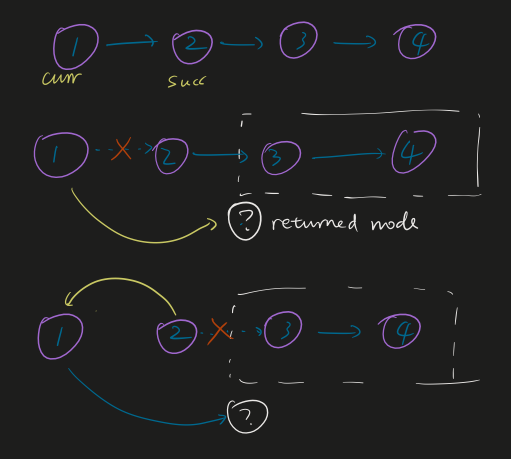 1 2 3 4
curr succ
1 2 3 4
? returned node
1 2 3 4
?